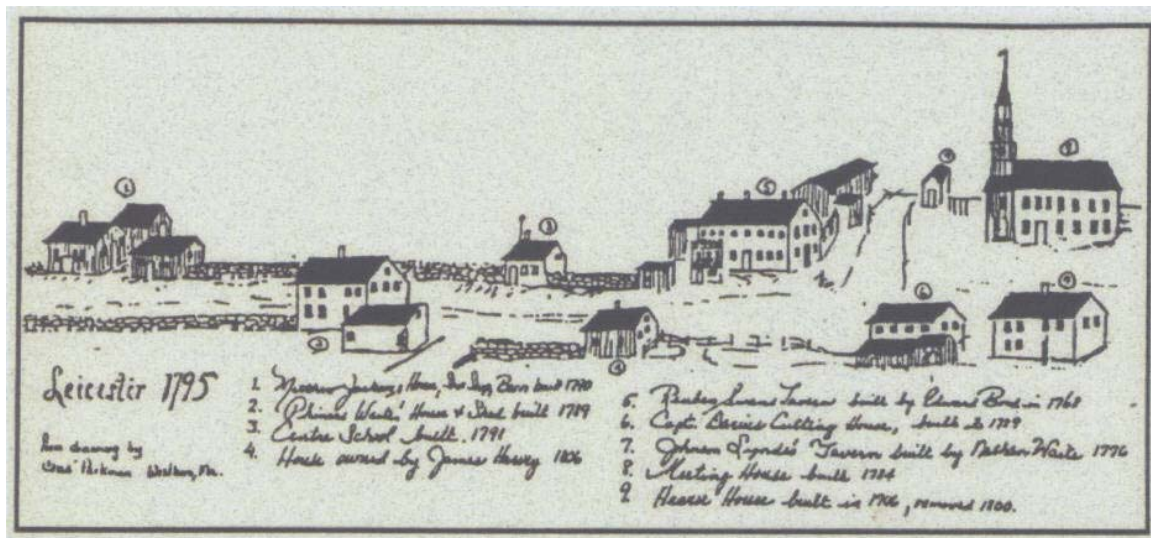 Leicester 1795
from drawing by
Parkman
1. House, Barn built 1790
2. House & Shed built 1789
3. Centre School built. 1791
4. House owned by James Harvey 1806
5. Reuben Swans Tavern built by Edward Bond in 1768
6. Capt. Darius Cutting House, built in 1789
7. Johnson Lynde's Tavern built by Nathan Waite 1776
8. Meeting House built 1784
9. Hearse House built in , removed 1800.